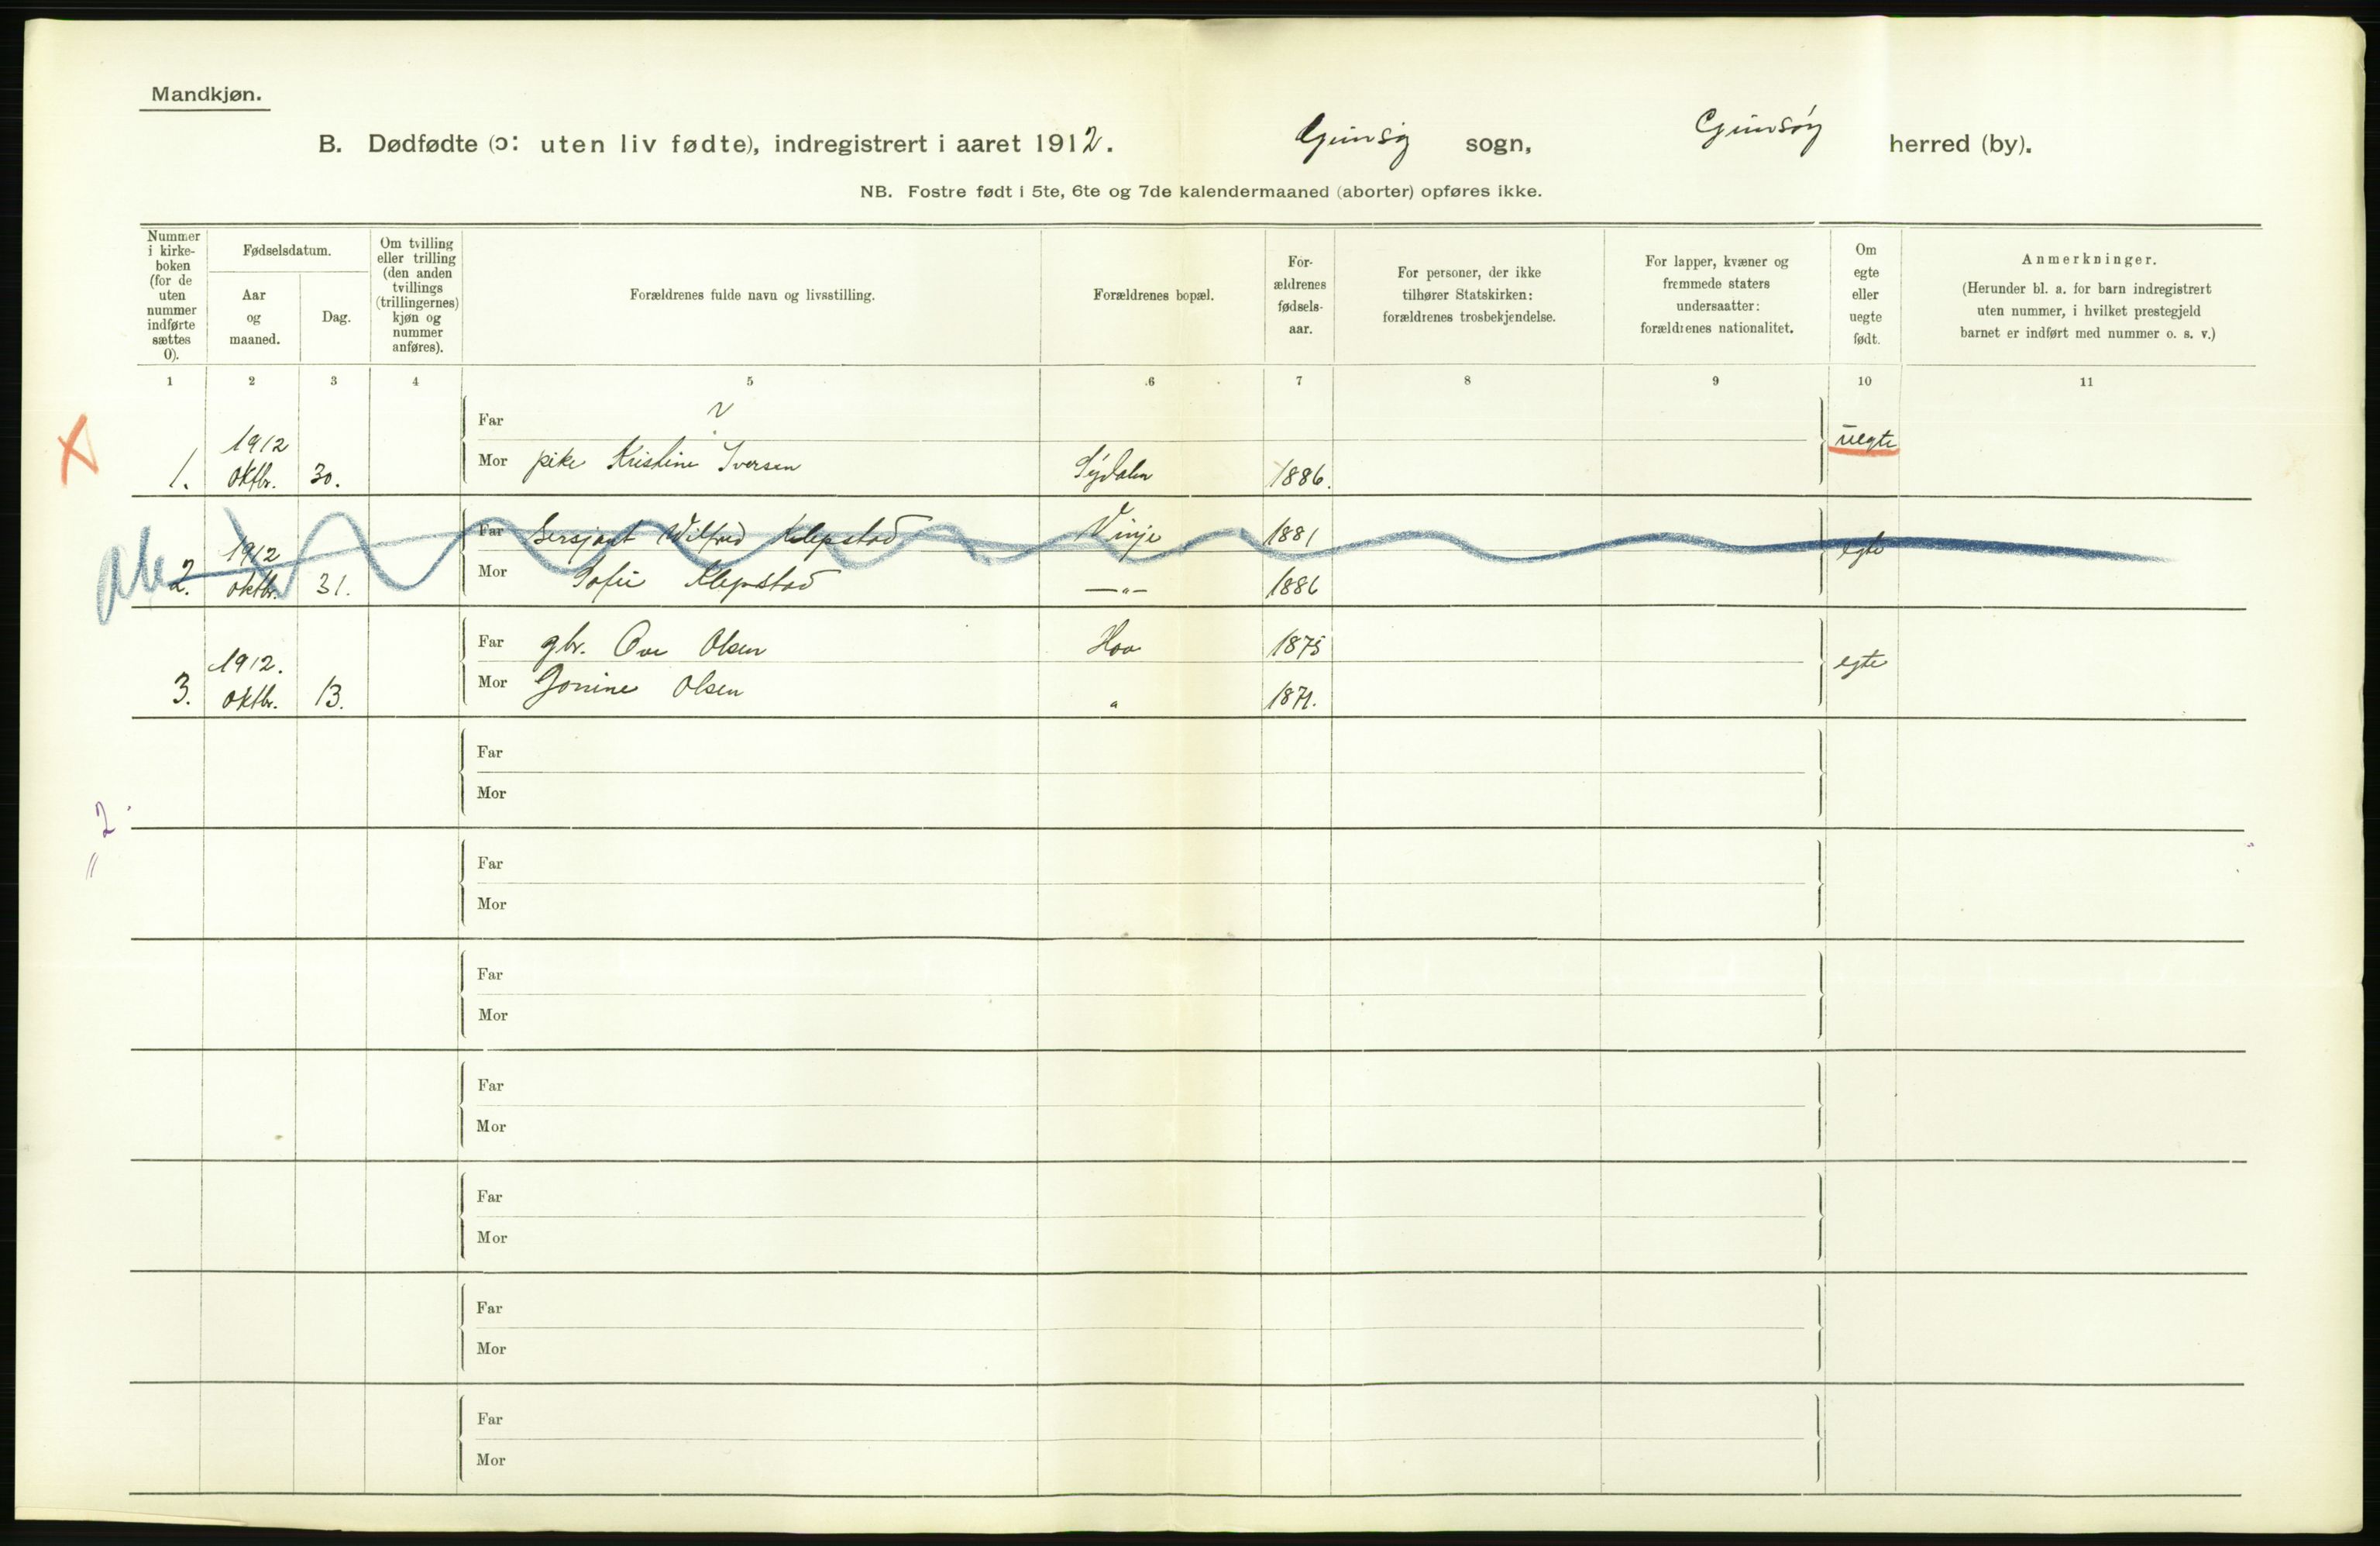 Mandkjøn.
B. Dødfødte (ɔ: uten liv fødte), indregistrert i aaret 1912. Gimsöy sogn, Gimsöy herred (by).
NB. Fostre født i 5te, 6te og 7de kalendermaaned (aborter) opføres ikke.
Nummer i kirke-boken (for de uten nummer indførte sættes 0).
Fødselsdatum.
Aar og maaned.
Dag.
Om tvilling eller trilling (den anden tvillings (trillingernes) kjøn og nummer anføres).
Forældrenes fulde navn og livsstilling.
Forældrenes bopæl.
For-ældrenes fødsels-aar.
For personer, der ikke tilhører Statskirken: forældrenes trosbekjendelse.
For lapper, kvæner og fremmede staters undersaatter: forældrenes nationalitet.
Om egte eller uegte født.
Anmerkninger.
(Herunder bl. a. for barn indregistrert uten nummer, i hvilket prestegjeld barnet er indført med nummer o. s. v.)
1 2 3 4 5 6 7 8 9 10 11
Far ?
1. 1912 oktbr. 30. Mor pike Kristine Iversen Sydalen 1886. uegte
Far Sersjant Wilfred Klepstad Vinje 1881
2. 1912 oktbr. 31. Mor Sofie Klepstad —„— 1886 egte
Far gbr. Ove Olsen Hov 1875
3. 1912. oktbr. 13. Mor Jonine Olsen „ 1871. egte
Far
Mor
2
Far
Mor
Far
Mor
Far
Mor
Far
Mor
Far
Mor
Far
Mor